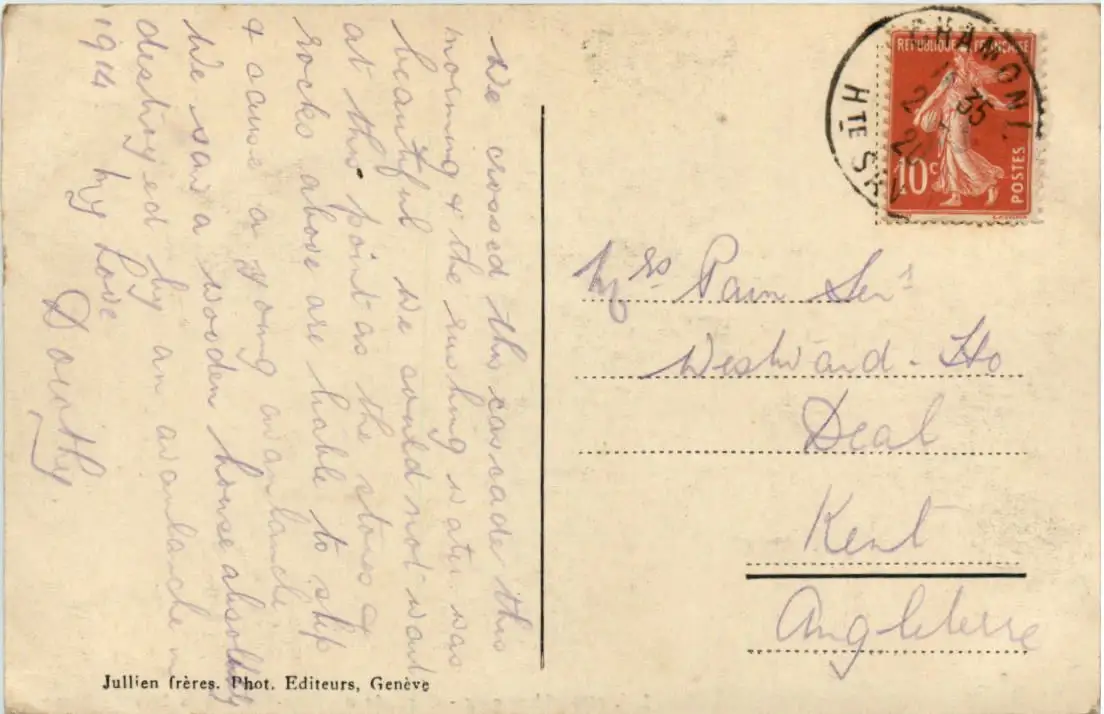 We crossed this cascade this
morning & the rushing water was
beautiful we could not wait
at this point as the stones &
rocks above are liable to slip
& cause a young avanlanche.
We saw a wooden house absolutely
destroyed by an avanlanche in
1914. My Love
Dorothy.
Jullien frères. Phot. Editeurs, Genève
CHAMONIX
HTE SAV
35
REPUBLIQUE FRANÇAISE
10c
POSTES
Mrs Pain Senr
Westward-Ho
Deal
Kent
Angleterre